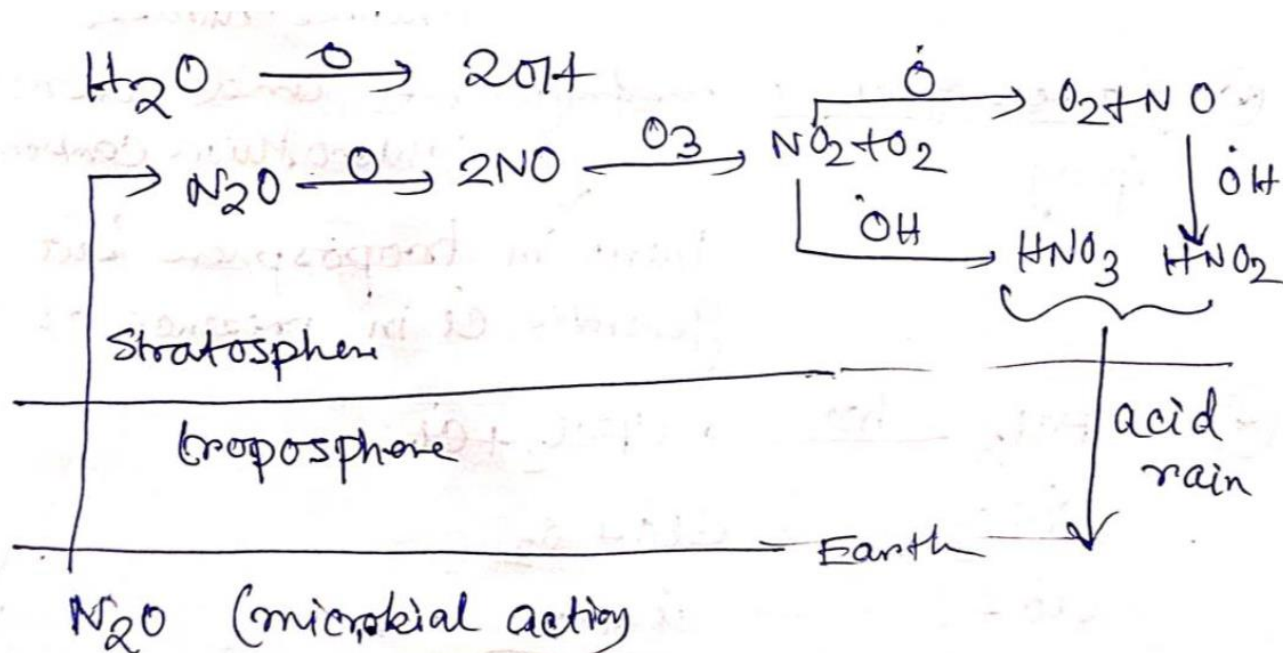 H₂O —O→ 2OH
N₂O —O→ 2NO —O₃→ NO₂+O₂ —Ȯ→ O₂+NO
ȮH
ȮH
HNO₃ HNO₂
Stratosphere
troposphere
acid
rain
Earth
N₂O (microbial action